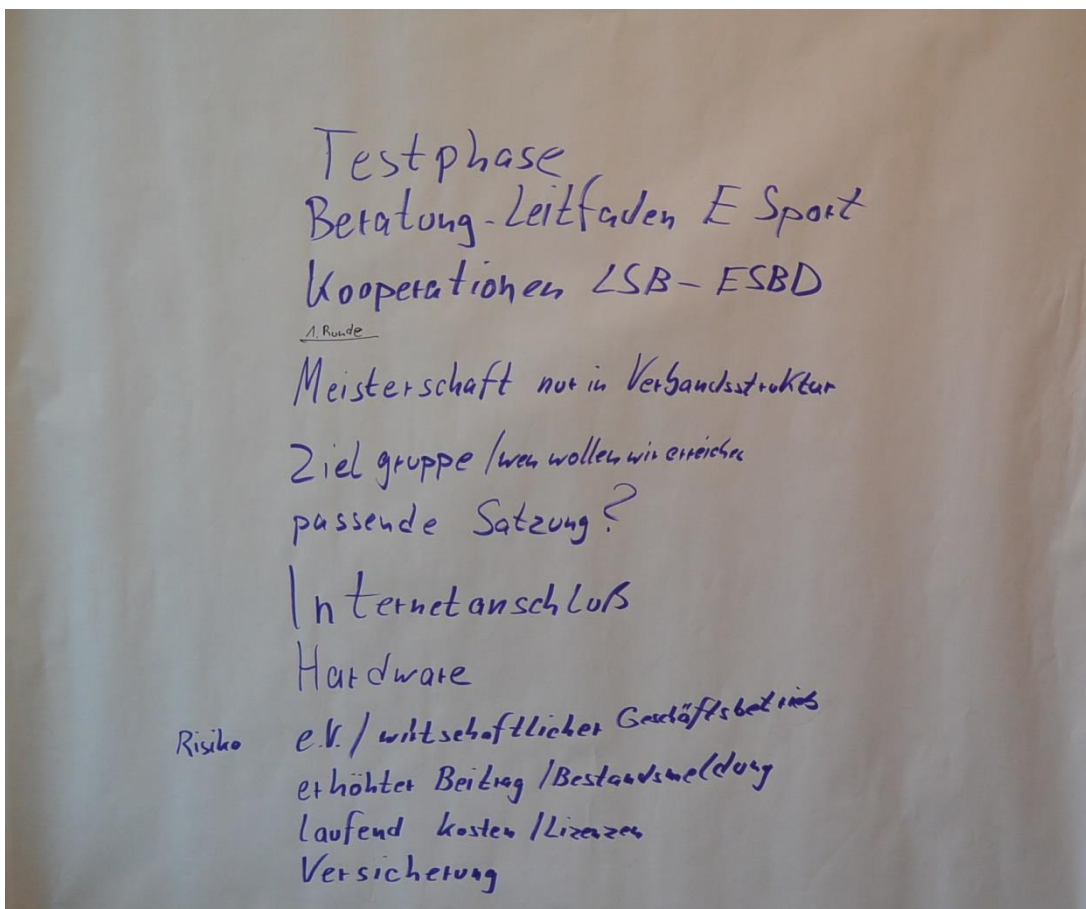 Testphase
Beratung-Leitfaden E Sport
Kooperationen LSB - ESBD
1. Runde
Meisterschaft nur in Verbandsstruktur
Zielgruppe / wen wollen wir erreichen
passende Satzung?
Internetanschluß
Hardware
Risiko e.V. / wirtschaftlicher Geschäftsbetrieb
erhöhter Beitrag / Bestandsmeldung
laufend kosten / Lizenzen
Versicherung